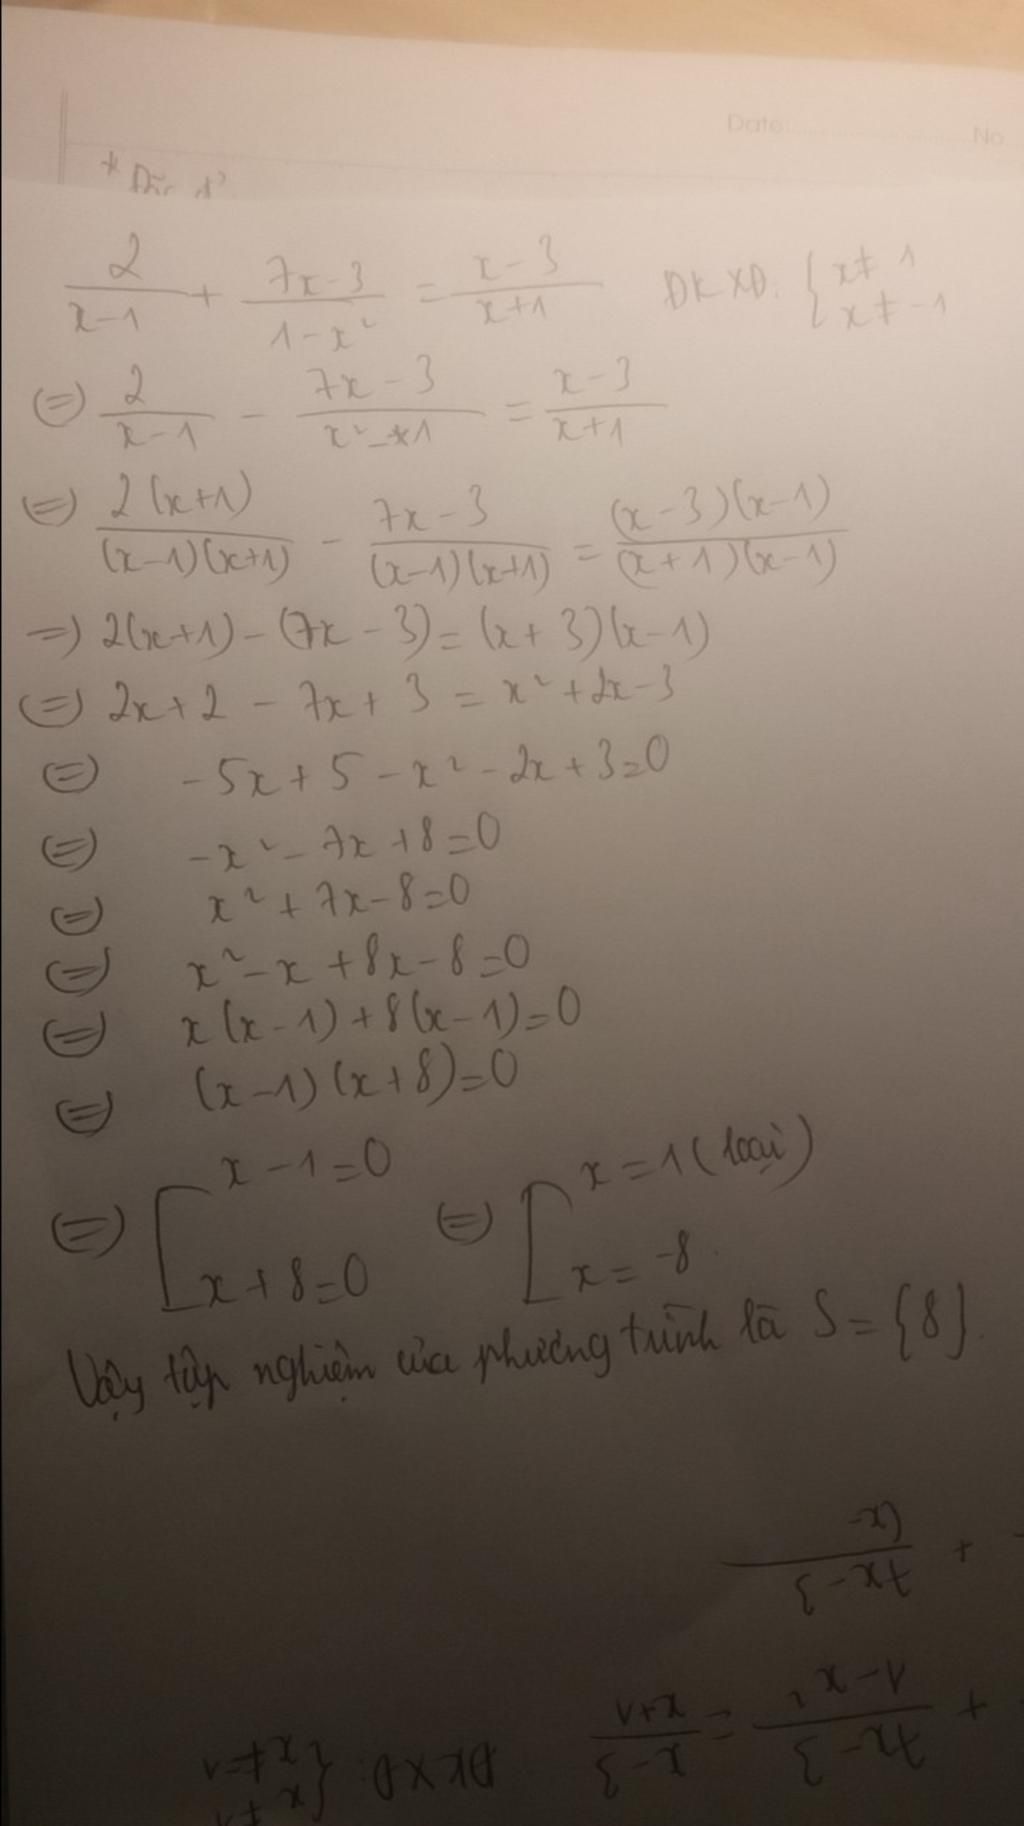 Date: No
*
2/(x-1) + (7x-3)/(1-x²) = (x-3)/(x+1) ĐKXĐ: { x≠1 x≠-1
(=) 2/(x-1) - (7x-3)/(x²-1) = (x-3)/(x+1)
(=) 2(x+1)/((x-1)(x+1)) - (7x-3)/((x-1)(x+1)) = (x-3)(x-1)/((x+1)(x-1))
=) 2(x+1)-(7x-3)=(x+3)(x-1)
(=) 2x+2-7x+3=x²+2x-3
(=) -5x+5-x²-2x+3=0
(=) -x²-7x+8=0
(=) x²+7x-8=0
(=) x²-x+8x-8=0
(=) x(x-1)+8(x-1)=0
(=) (x-1)(x+8)=0
(=) [ x-1=0 (=) [ x=1 (loại)
x+8=0 x=-8
Vậy tập nghiệm của phương trình là S={8}.
+ (7x-3)/(x-
+ (7x-3)/(1-x²) = (x-3)/(x+1) ĐKXĐ: { x≠1 x≠-1